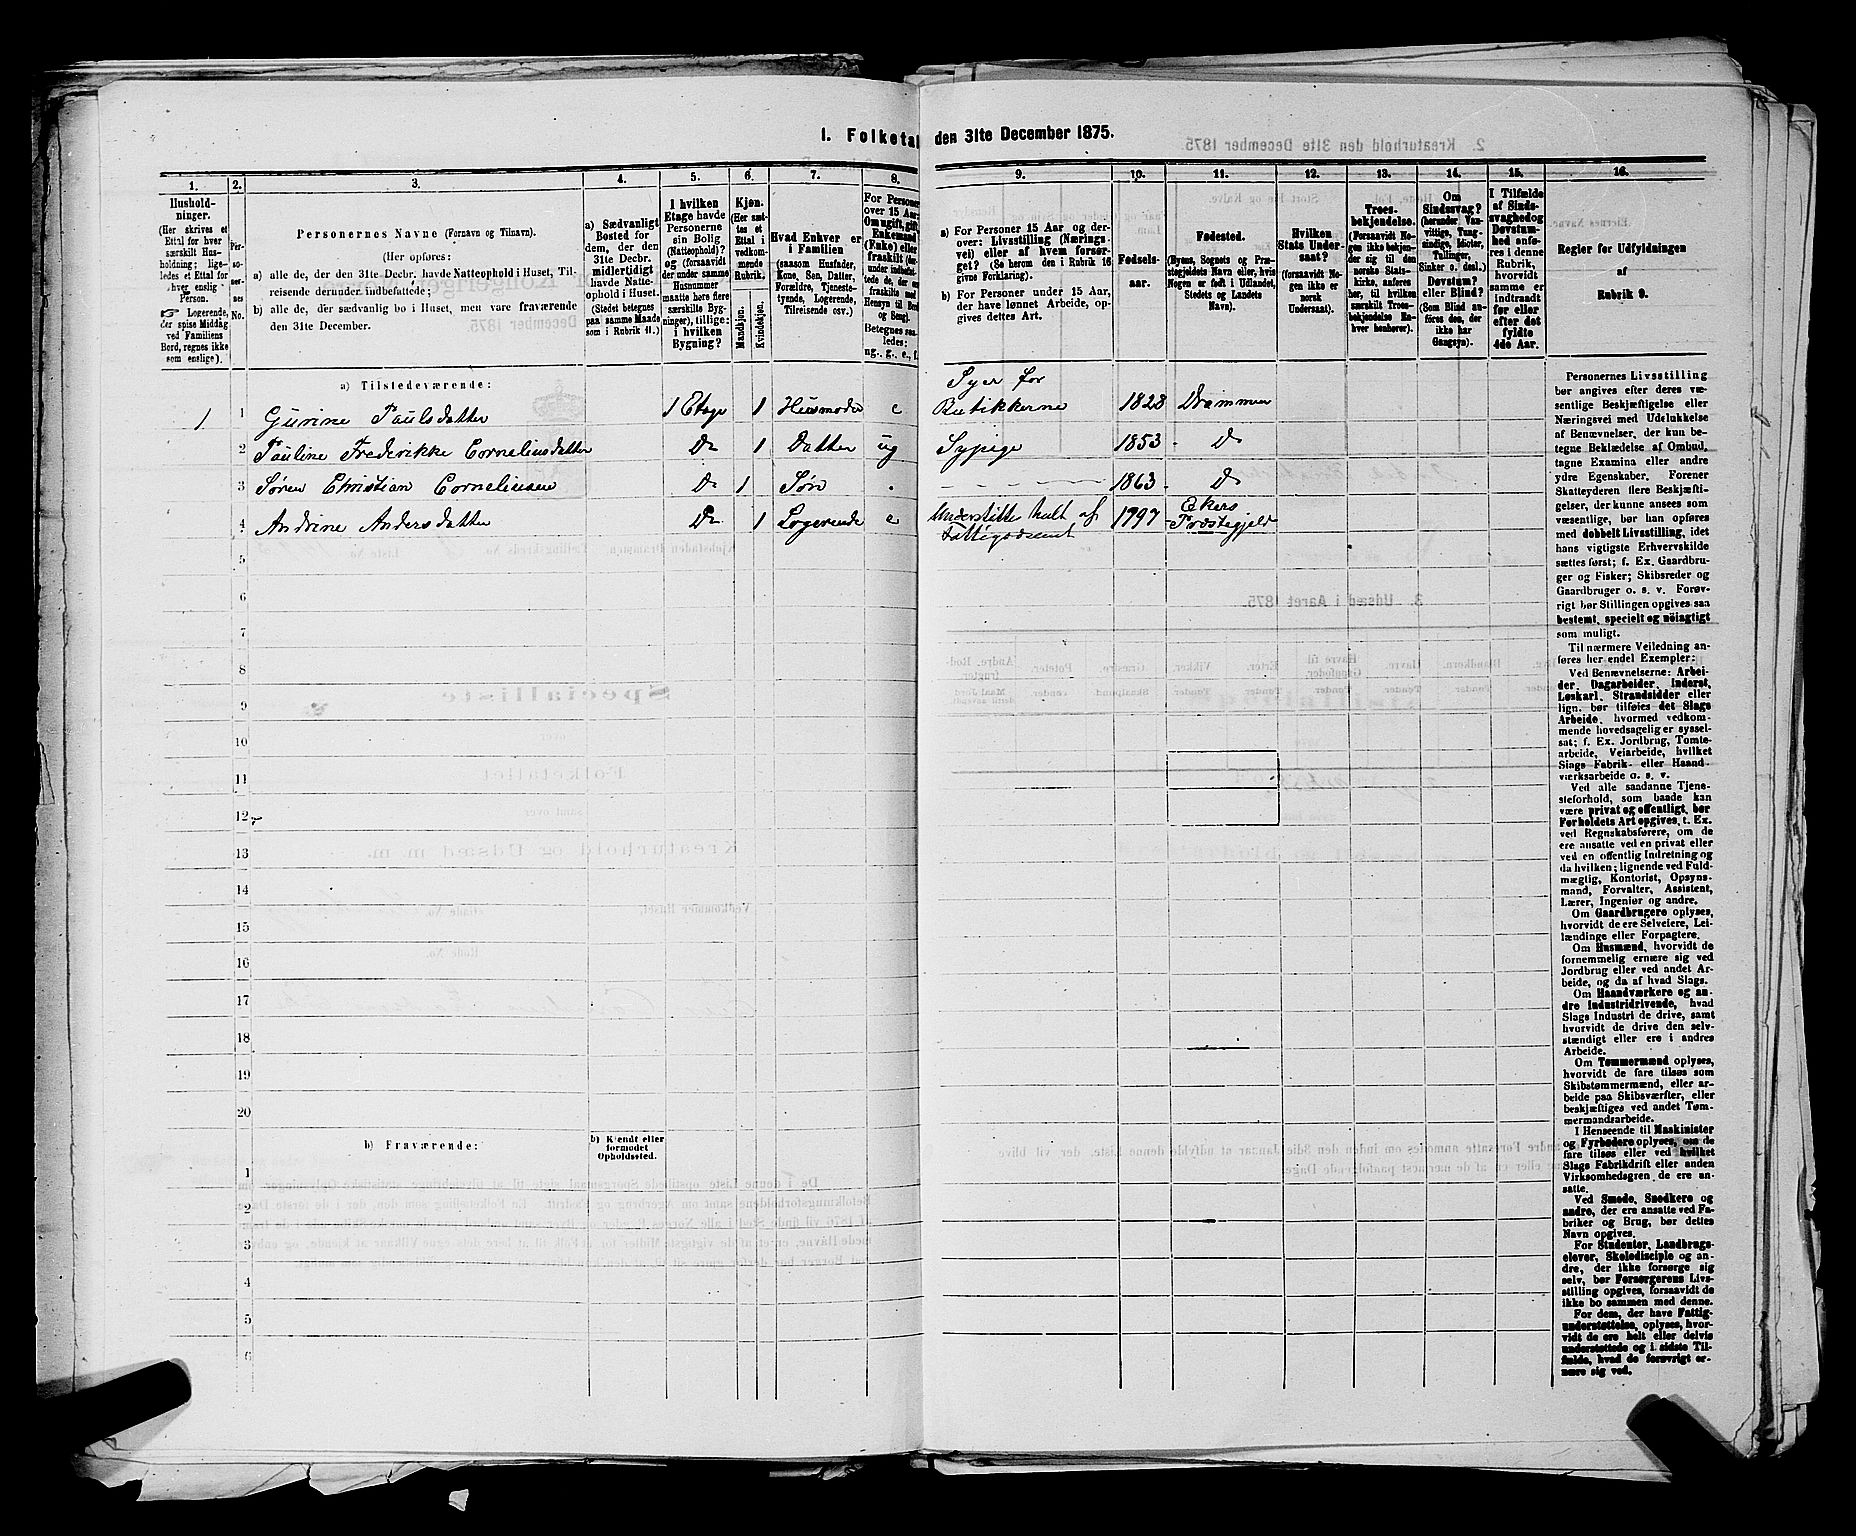 1. Folketal den 31te December 1875.
1. 2. 3. 4. 5. 6. 7. 8. 9. 10. 11. 12. 13. 14. 15. 16.
Hushold-
ninger.
(Her skrives et
Ettal for hver
særskilt Hus-
holdning; lige-
ledes et Ettal for
hver enslig
Person.
Logerende,
der spise Middag
ved Familiens
Bord, regnes ikke
som enslige).
Per-
so-
ner-
nes
No.
Personernes Navne (Fornavn og Tilnavn).
(Her opføres:
a) alle de, der den 31te Decbr. havde Natteophold i Huset, Til-
reisende derunder indbefattede;
b) alle de, der sædvanlig bo i Huset, men vare fraværende
den 31te December.
a) Sædvanligt
Bosted for
dem, der den
31te Decbr.
midlertidigt
havde Natte-
ophold i Huset.
(Stedet betegnes
paa samme Maade
som i Rubrik 11.)
I hvilken
Etage havde
Personerne
sin Bolig
(Natteophold)?
og (forsaavidt
der under samme
Husnummer
maatte høre flere
særskilte Byg-
ninger), tillige:
i hvilken
Bygning?
Kjøn.
(Her sæt-
tes et
Ettal i
vedkom-
mende
Rubrik.
Mandkjøn.
Kvindekjøn.
Hvad Enhver er
i Familien
(saasom Husfader,
Kone, Søn, Datter,
Forældre, Tjeneste-
tyende, Logerende,
Tilreisende osv.)
For Personer
over 15 Aar:
Om ugift, gift,
Enkemand
(Enke) eller
fraskilt
Betegnes saa-
ledes:
ug., g., e., f.
a) For Personer 15 Aar og der-
over: Livsstilling (Nærings-
vei) eller af hvem forsør-
get? (Se herom den i Rubrik 16
givne Forklaring).
b) For Personer under 15 Aar,
der have lønnet Arbeide, op-
gives dettes Art.
Fødsels-
aar.
Fødested.
(Byens, Sognets og Præ-
stegjeldets Navn eller, hvis
Nogen er født i Udlandet,
Stedets og Landets
Navn).
Hvilken
Stats Under-
saat?
(forsaavidt No-
gen ikke er
norsk
Undersaat).
Troes-
bekjendelse.
(Forsaavidt No-
gen ikke bekjen-
der sig til den
norske Stats-
kirke, anføres
her, til hvilken
særskilt Troes-
bekjendelse En-
hver henhører).
Om
Sindssvag?
(herunder Van-
vittige, Tung-
sindige, Idioter,
Tullinger,
Sinker o. desl.)
Døvstum?
eller Blind?
(Som Blind an-
føres den, der
ikke har
Gangsyn).
I Tilfælde
af Sinds-
svaghed og
Døvstum-
hed anfø-
res i denne
Rubrik,
hvorvidt
samme er
indtraadt
før eller
efter det
fyldte
4de Aar.
Regler for Udfyldningen
af
Rubrik 9.
a) Tilstedeværende:
1 1 Gurine Paulsdatter 1 Etage 1 Husmoder e Syer for Butikkerne 1828 Drammen
2 Pauline Frederikke Corneliusdatter Do 1 Datter ug Sypige 1853 Do
3 Søren Christian Corneliusen Do 1 Søn 1863 Do
4 Andrine Andersdatter Do 1 Logerende e Understøttes helt af Fattigvæsenet 1797 Ekers Præstegjeld
5
6
7
8
9
10
11
12
13
14
15
16
17
18
19
20
b) Fraværende:
b) Kjendt eller
formodet
Opholdssted.
1
2
3
4
5
6
Personernes Livsstilling
bør angives efter deres væ-
sentlige Beskjæftigelse eller
Næringsvei med Udelukkelse
af Benævnelser, der kun be-
tegne Beklædelse af Ombud,
tagne Examina eller andre
ydre Egenskaber. Forener
Skatteyderen flere Beskjæfti-
gelser, der kunne ansees som
væsentlige, bør han opføres
med dobbelt Livsstilling, idet
hans vigtigste Erhvervskilde
sættes først; f. Ex. Gaardbru-
ger og Fisker; Skibsreder og
Gaardbruger o. s. v. Forøv-
rigt bør Stillingen opgives saa
bestemt, specielt og nøiagtigt
som muligt.
Til nærmere Veiledning an-
føres her endel Exempler:
Ved Benævnelserne: Arbei-
der, Dagarbeider, Inderst,
Løskarl, Strandsidder eller
lign. bør tilføies det Slags
Arbeide, hvormed vedkom-
mende hovedsagelig er syssel-
sat; f. Ex. Jordbrug, Tomte-
arbeide, Veiarbeide, hvilket
Slags Fabrik- eller Haand-
værksarbeide o. s. v.
Ved alle saadanne Tjene-
steforhold, som baade kan
være privat og offentligt, bør
Forholdets Art opgives, t. Ex.
ved Regnskabsførere, om de
ere ansatte ved en privat eller
ved en offentlig Indretning og
da hvilken; lignende ved Fuld-
mægtig, Kontorist, Opsyns-
mand, Forvalter, Assistent,
Lærer, Ingeniør og andre.
Om Gaardbrugere oplyses,
hvorvidt de ere Selveiere, Lei-
lændinge eller Forpagtere.
Om Husmænd, hvorvidt de
fornemmelig ernære sig ved
Jordbrug eller ved andet Ar-
beide, og da af hvad Slags.
Om Haandværkere og an-
dre Industridrivende, hvad
Slags Industri de drive, samt
hvorvidt de drive den selv-
stændigt eller ere i andres
Arbeide.
Om Tømmermænd oplyses,
hvorvidt de fare tilsøs som
Skibstømmermænd, eller ar-
beide paa Skibsværfter, eller
beskjæftiges ved andet Tøm-
mermandsarbeide.
I Henseende til Maskinister
og Fyrbødere oplyses, om de
fare tilsøs eller ved hvilket
Slags Fabrikdrift eller anden
Virksomhedsgren de ere an-
satte.
Ved Smede, Snedkere og
andre, der ere ansatte ved Fa-
briker og Brug, bør dettes
Navn opgives.
For Studenter, Landbrugs-
elever, Skoledisciple og an-
dre, der ikke forsørge sig
selv, bør Forsørgerens Livs-
stilling opgives, forsaavidt de
ikke bo sammen med denne.
For dem, der have Fattig-
understøttelse, oplyses, hvor-
vidt de ere helt eller delvis
understøttede og i sidste Til-
fælde, hvad de forøvrigt er-
nære sig ved.